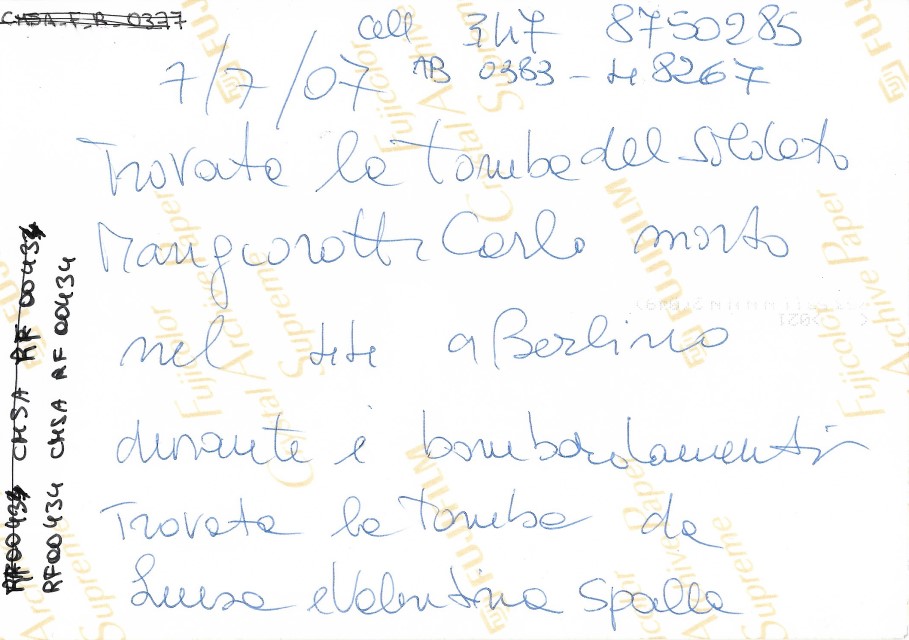 CHSA F.R. 0377
cell 347 8750285
7/7/07 AB 0383-48267
Trovata la tomba del soldato
Mangiarotti Carlo morto
nel 44 a Berlino
durante i bombardamenti
Trovata la tomba da
Luisa e Valentina Spalla
RF00434 CHSA RF 00434
FUJIFILM
Fujicolor
Crystal Archive Paper
Supreme